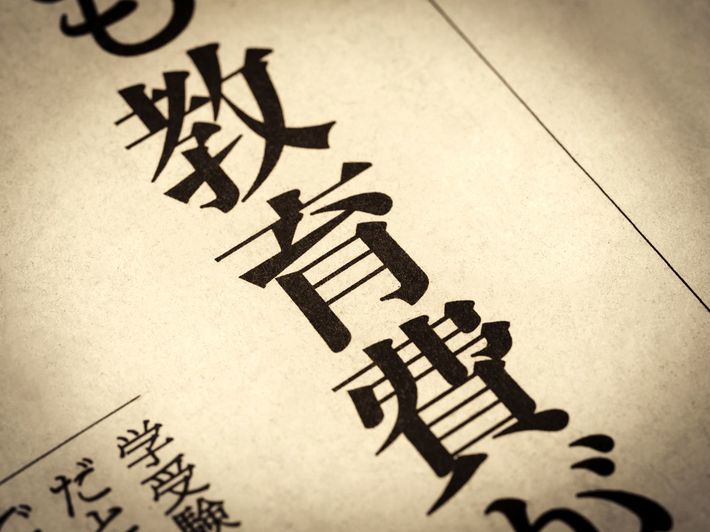 も教育費が
学受験
だ
で